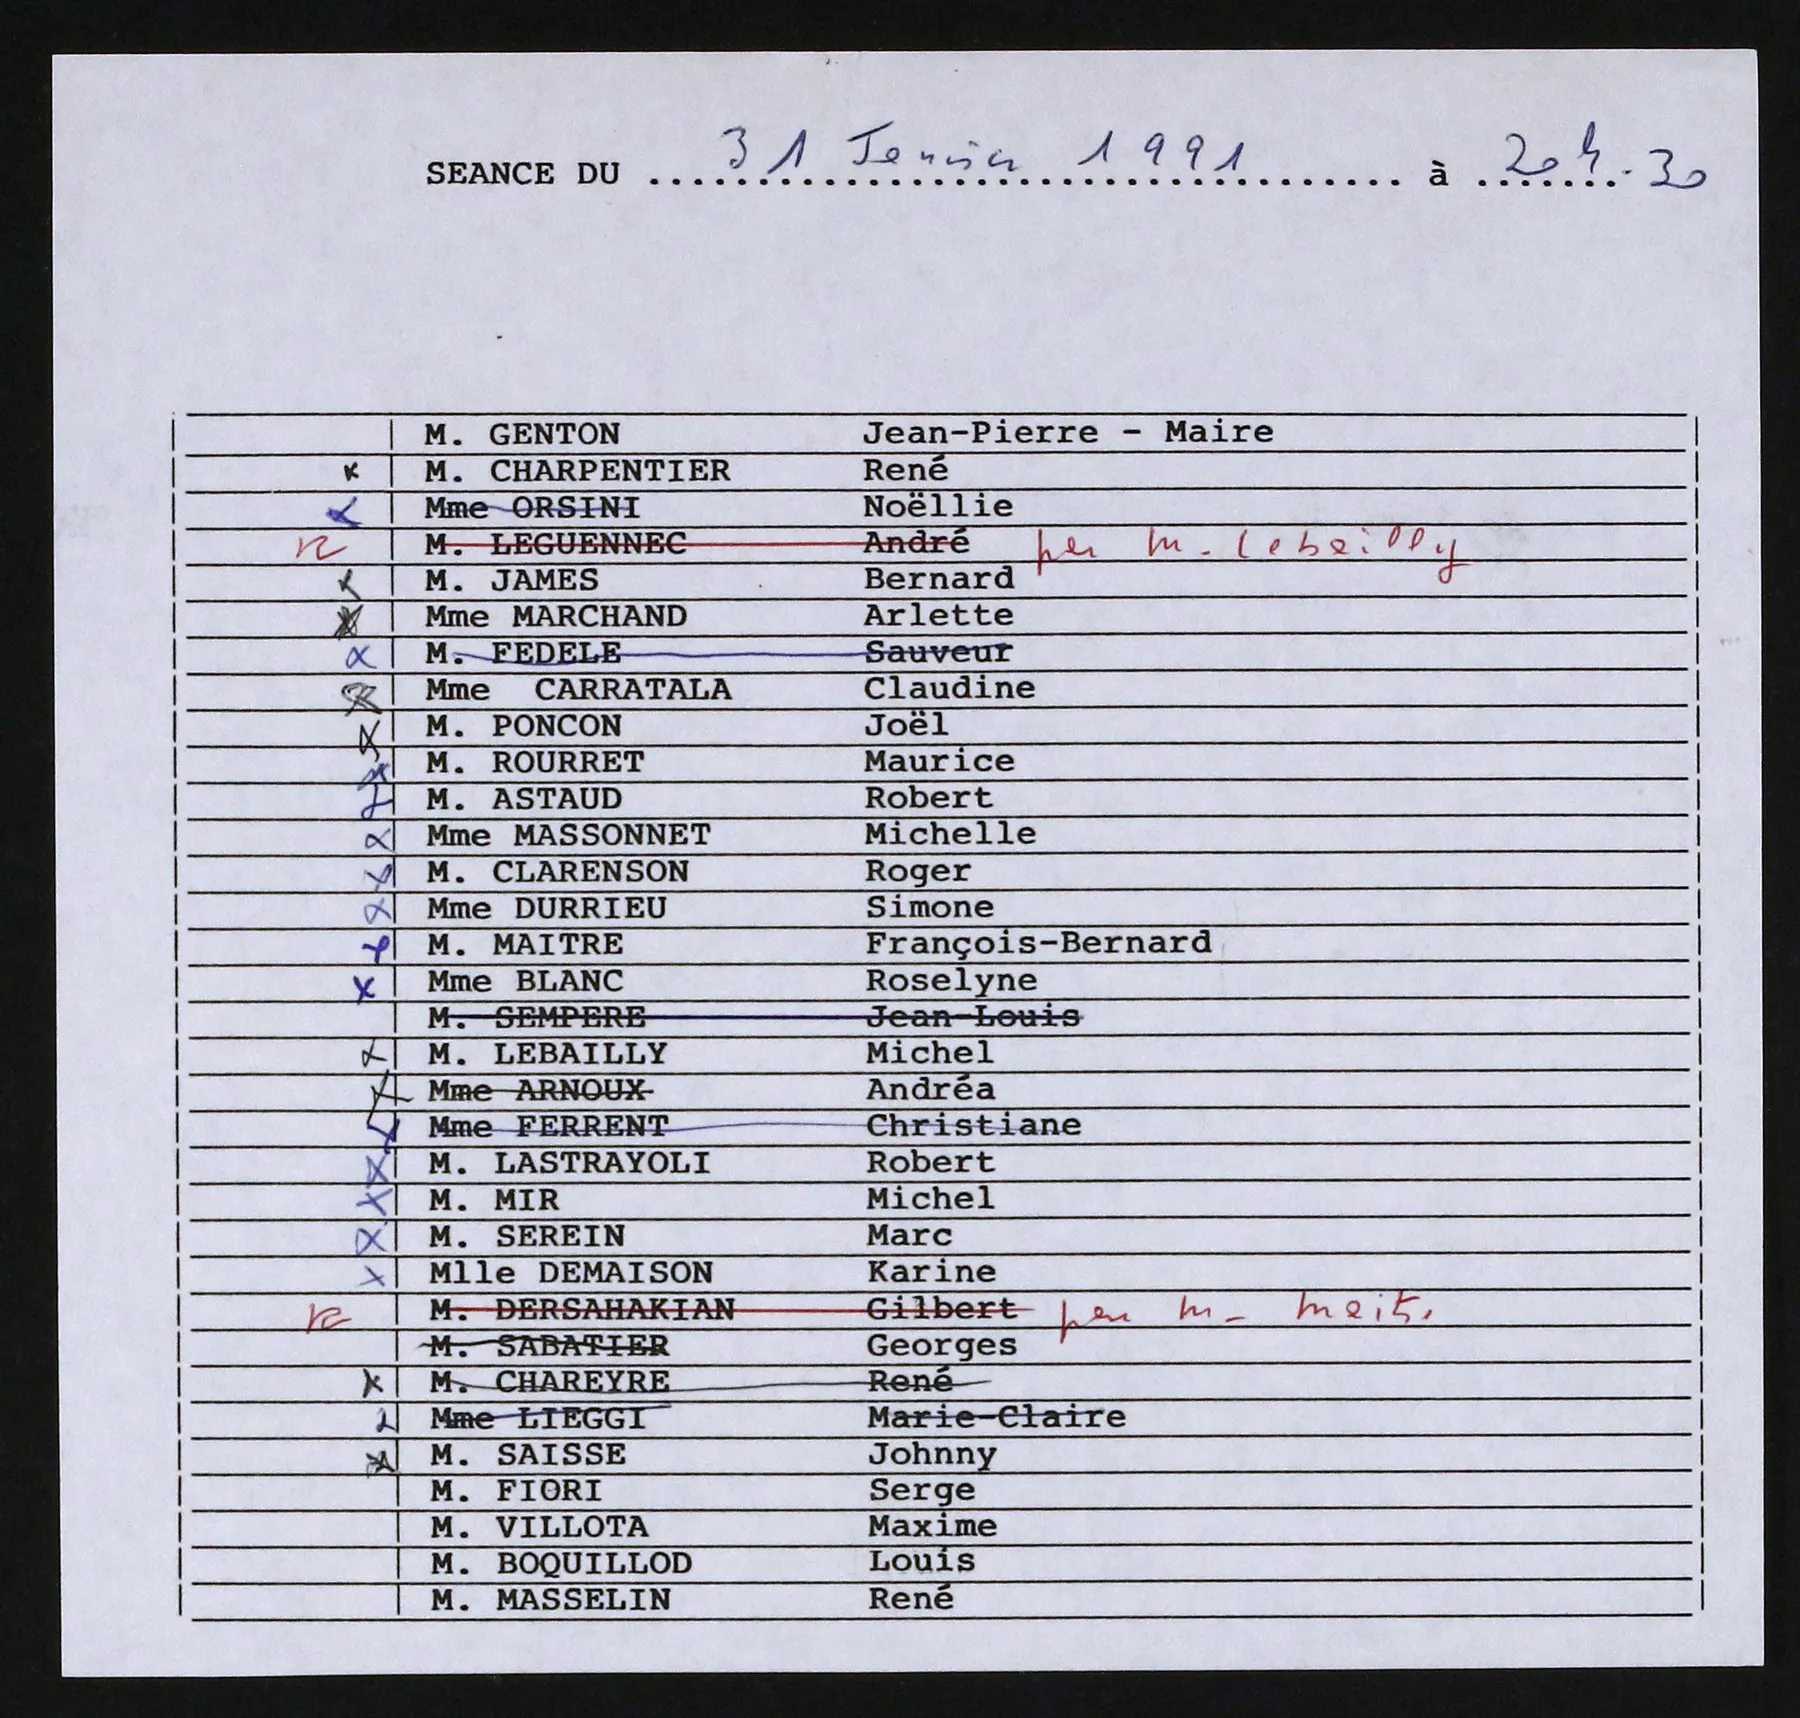 SEANCE DU 31 Janvier 1991 à 20h.30
M. GENTON Jean-Pierre - Maire
x M. CHARPENTIER René
x Mme ORSINI Noëllie
M. LEGUENNEC André par M. Lebailly
x M. JAMES Bernard
x Mme MARCHAND Arlette
x M. FEDELE Sauveur
x Mme CARRATALA Claudine
x M. PONCON Joël
x M. ROURRET Maurice
x M. ASTAUD Robert
x Mme MASSONNET Michelle
x M. CLARENSON Roger
x Mme DURRIEU Simone
x M. MAITRE François-Bernard
x Mme BLANC Roselyne
M. SEMPERE Jean-Louis
x M. LEBAILLY Michel
x Mme ARNOUX Andréa
x Mme FERRENT Christiane
x M. LASTRAYOLI Robert
x M. MIR Michel
x M. SEREIN Marc
x Mlle DEMAISON Karine
M. DERSAHAKIAN Gilbert par M.
M. SABATIER Georges
x M. CHAREYRE René
x Mme LIEGGI Marie-Claire
x M. SAISSE Johnny
M. FIORI Serge
M. VILLOTA Maxime
M. BOQUILLOD Louis
M. MASSELIN René